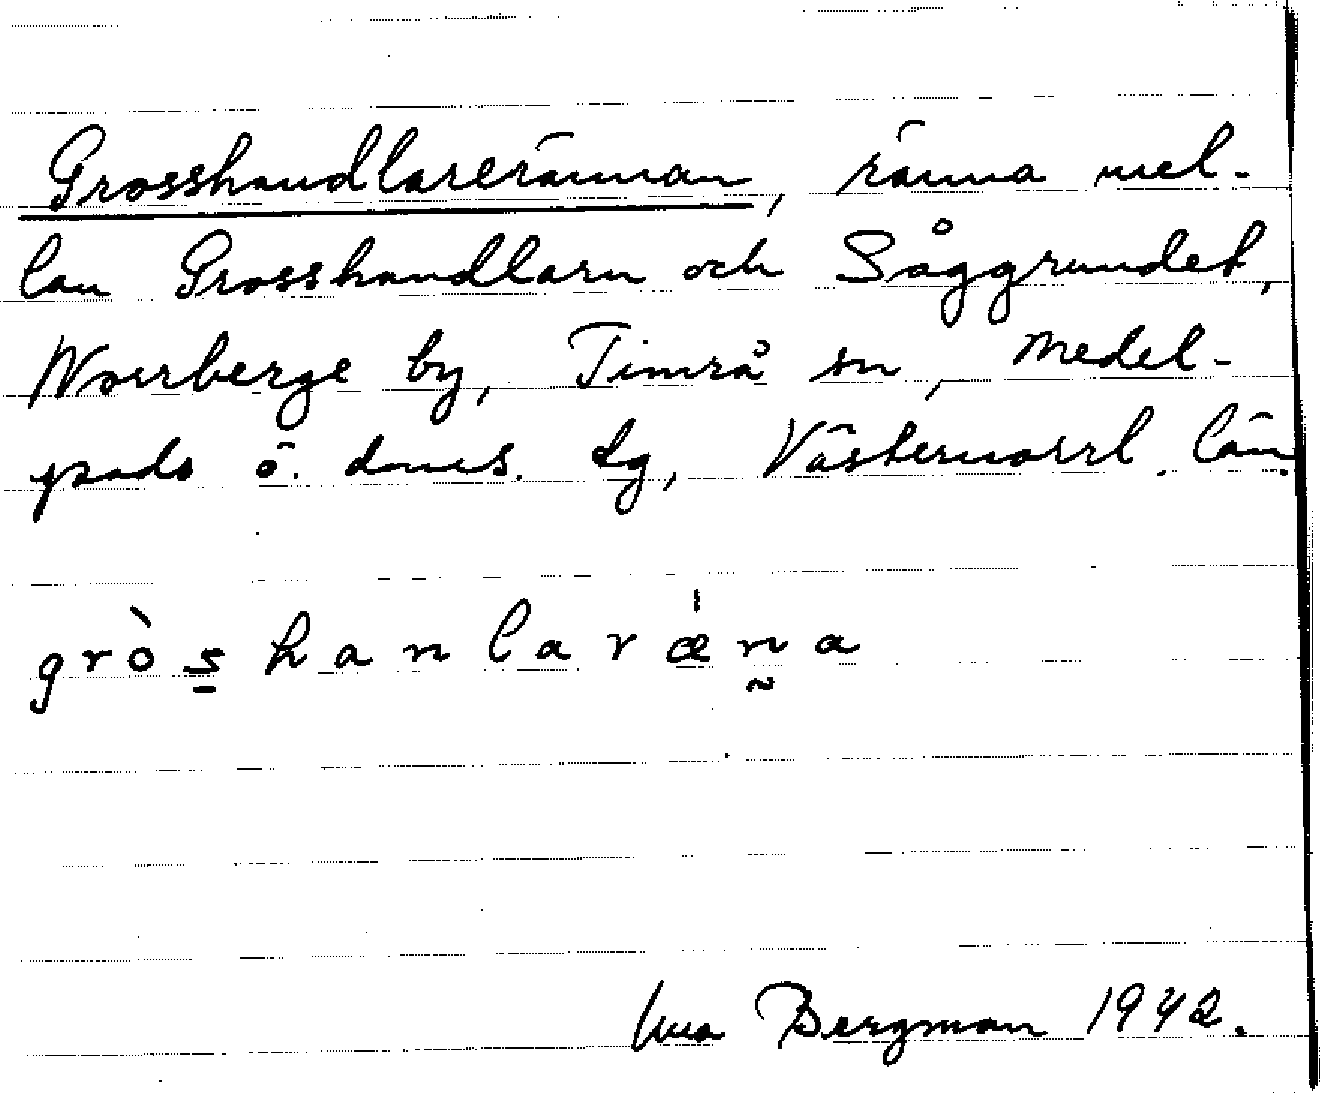 Grosshandlarerännan, ränna mel-
lan Grosshandlarn och Såggrundet,
Norrberge by, Timrå sn, Medel-
pads ö. doms. tg, Västernorrl. län.
gròs̱hanlaræ̍n̰a
Bergman 1942.